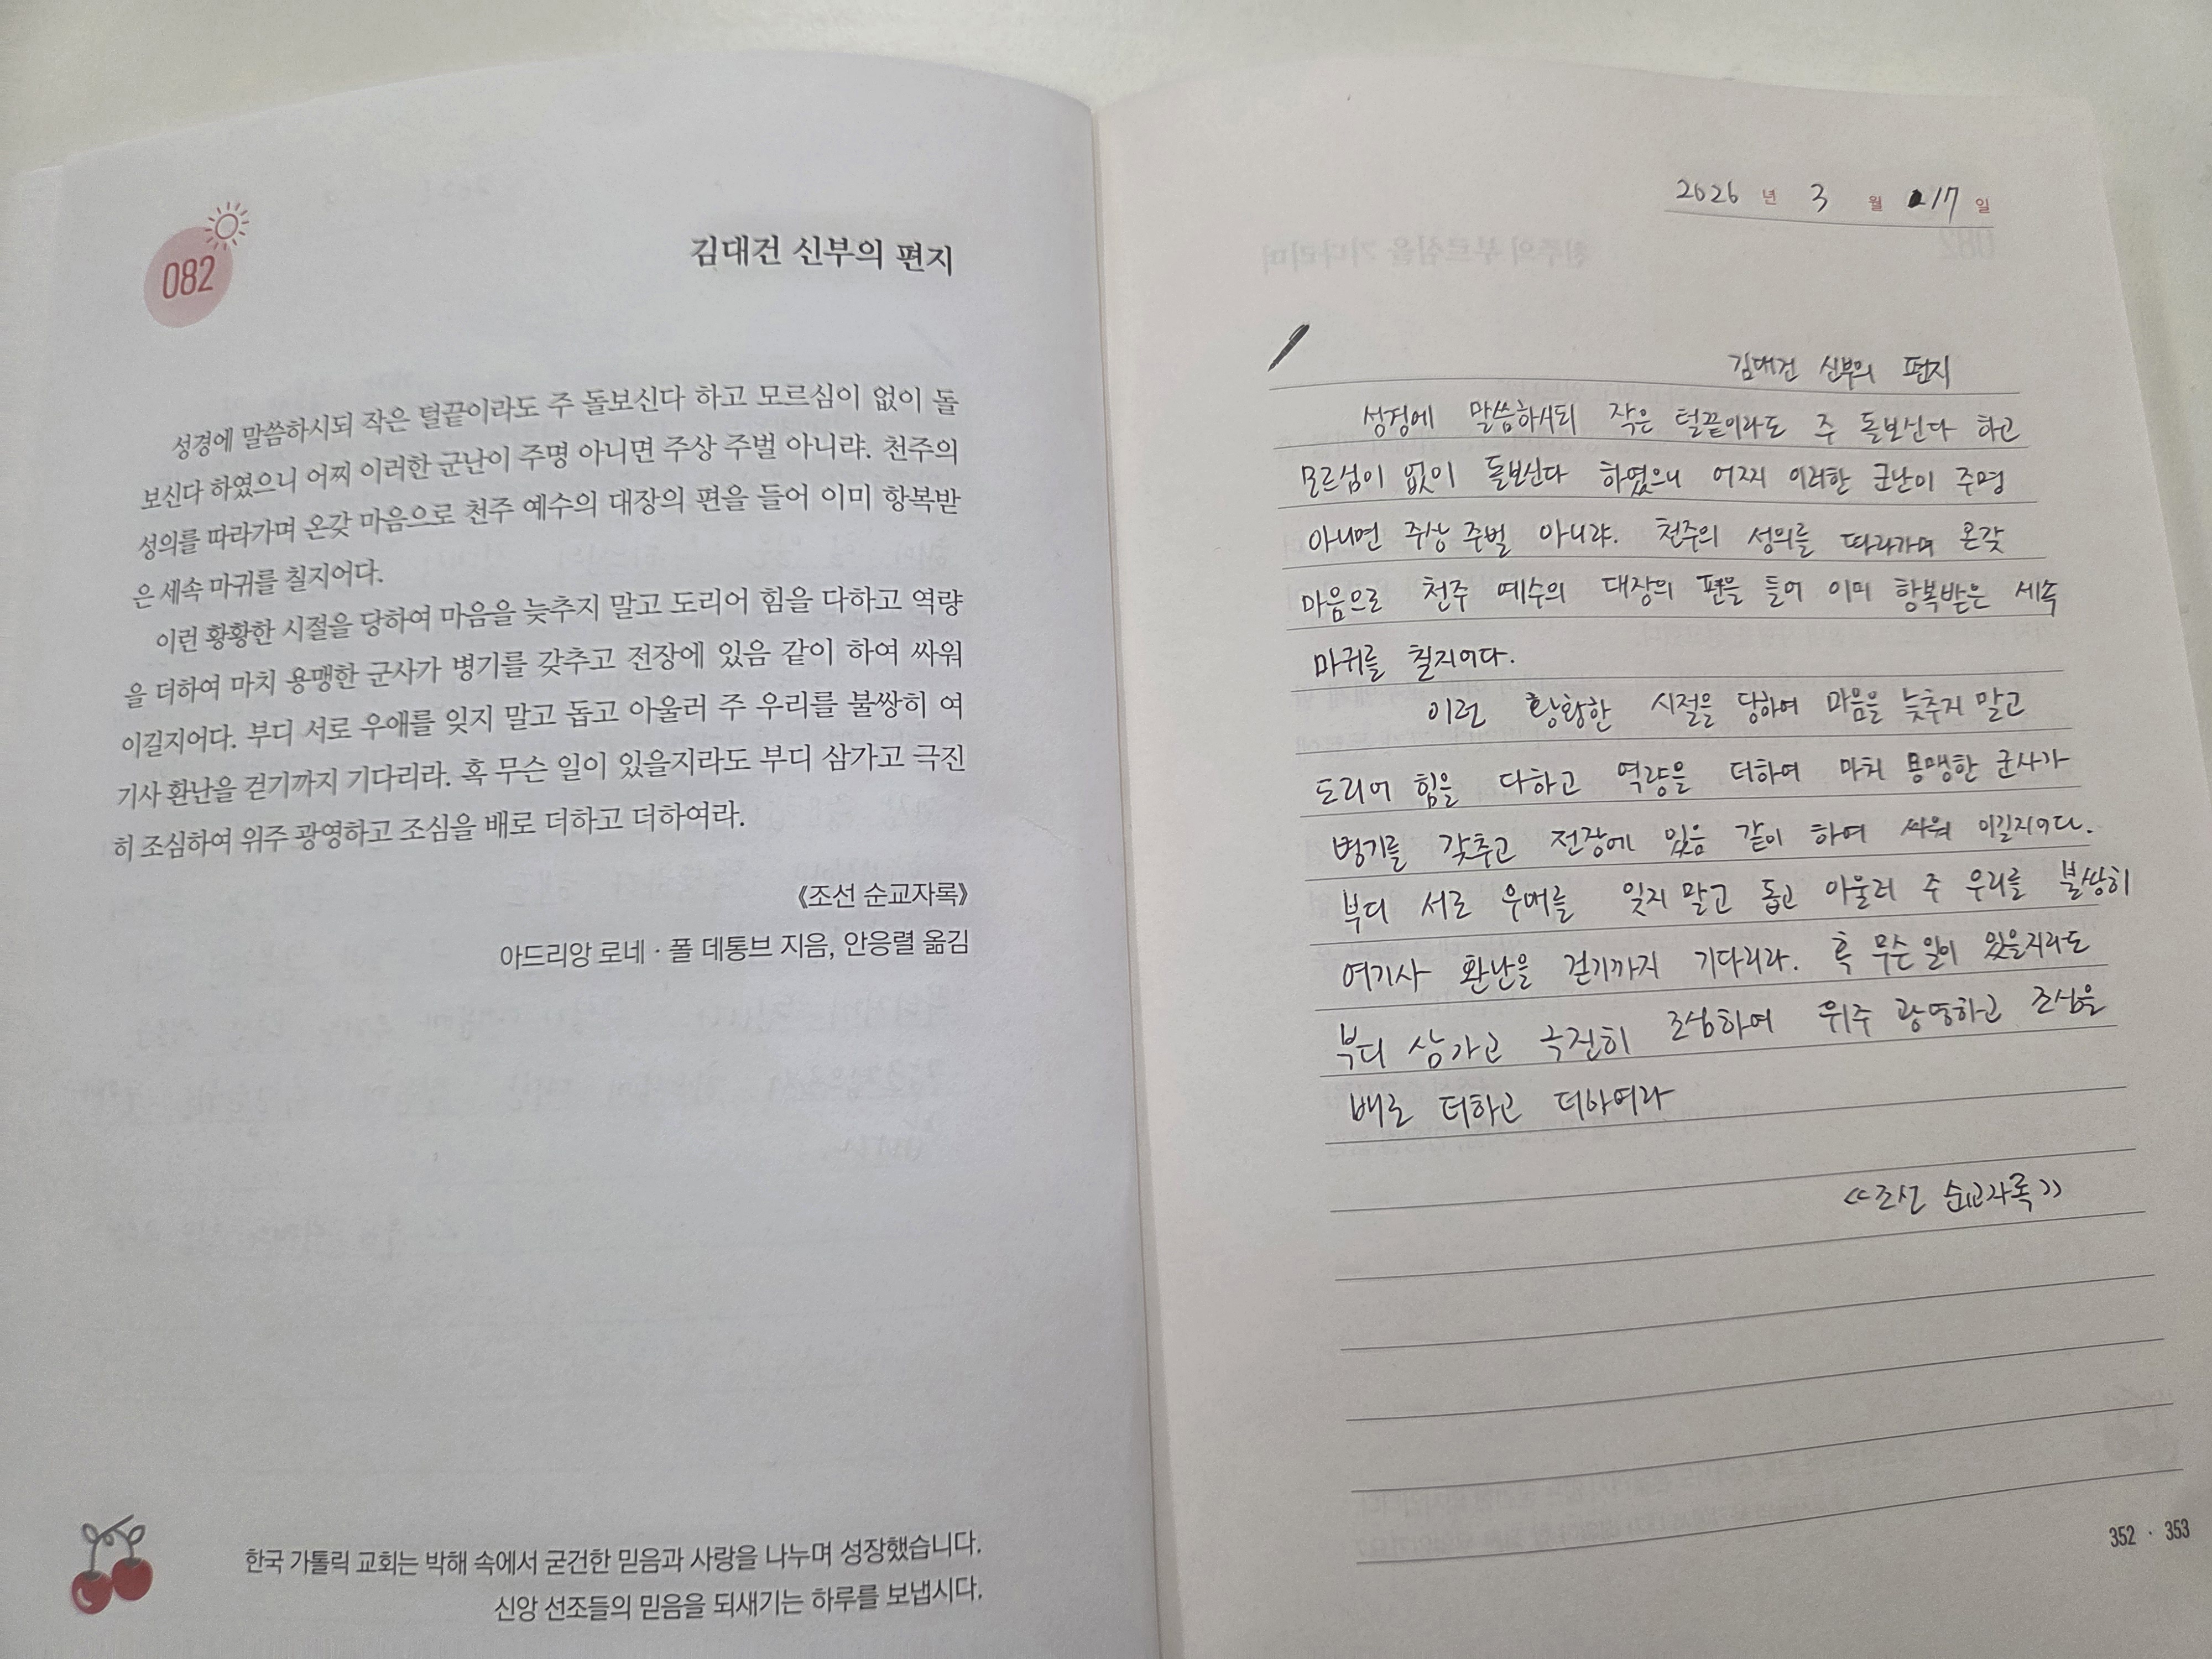 082
김대건 신부의 편지
성경에 말씀하시되 작은 털끝이라도 주 돌보신다 하고 모르심이 없이 돌
보신다 하였으니 어찌 이러한 군난이 주명 아니면 주상 주벌 아니랴. 천주의
성의를 따라가며 온갖 마음으로 천주 예수의 대장의 편을 들어 이미 항복받
은 세속 마귀를 칠지어다.
이런 황황한 시절을 당하여 마음을 늦추지 말고 도리어 힘을 다하고 역량
을 더하여 마치 용맹한 군사가 병기를 갖추고 전장에 있음 같이 하여 싸워
이길지어다. 부디 서로 우애를 잊지 말고 돕고 아울러 주 우리를 불쌍히 여
기사 환난을 걷기까지 기다리라. 혹 무슨 일이 있을지라도 부디 삼가고 극진
히 조심하여 위주 광영하고 조심을 배로 더하고 더하여라.
《조선 순교자록》
아드리앙 로네 · 폴 데통브 지음, 안응렬 옮김
한국 가톨릭 교회는 박해 속에서 굳건한 믿음과 사랑을 나누며 성장했습니다.
신앙 선조들의 믿음을 되새기는 하루를 보냅시다.
2026 년 3 월 17 일
김대건 신부의 편지
성경에 말씀하시되 작은 털끝이라도 주 돌보신다 하고
모르심이 없이 돌보신다 하였으니 어찌 이러한 군난이 주명
아니면 주상 주벌 아니랴. 천주의 성의를 따라가며 온갖
마음으로 천주 예수의 대장의 편을 들어 이미 항복받은 세속
마귀를 칠지어다.
이런 황황한 시절을 당하여 마음을 늦추지 말고
도리어 힘을 다하고 역량을 더하여 마치 용맹한 군사가
병기를 갖추고 전장에 있음 같이 하여 싸워 이길지어다.
부디 서로 우애를 잊지 말고 돕고 아울러 주 우리를 불쌍히
여기사 환난을 걷기까지 기다리라. 혹 무슨 일이 있을지라도
부디 삼가고 극진히 조심하여 위주 광영하고 조심을
배로 더하고 더하여라
<<조선 순교자록>>
352 · 353